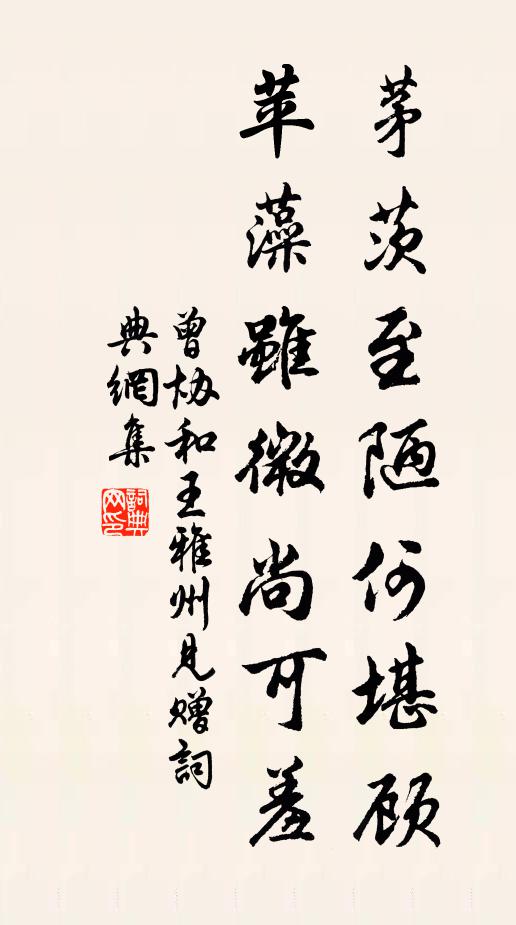 茅茨至陋何堪顾
苹藻雖微尚可羞
曾协和王雅州見赠詞
典網集
詞典网印